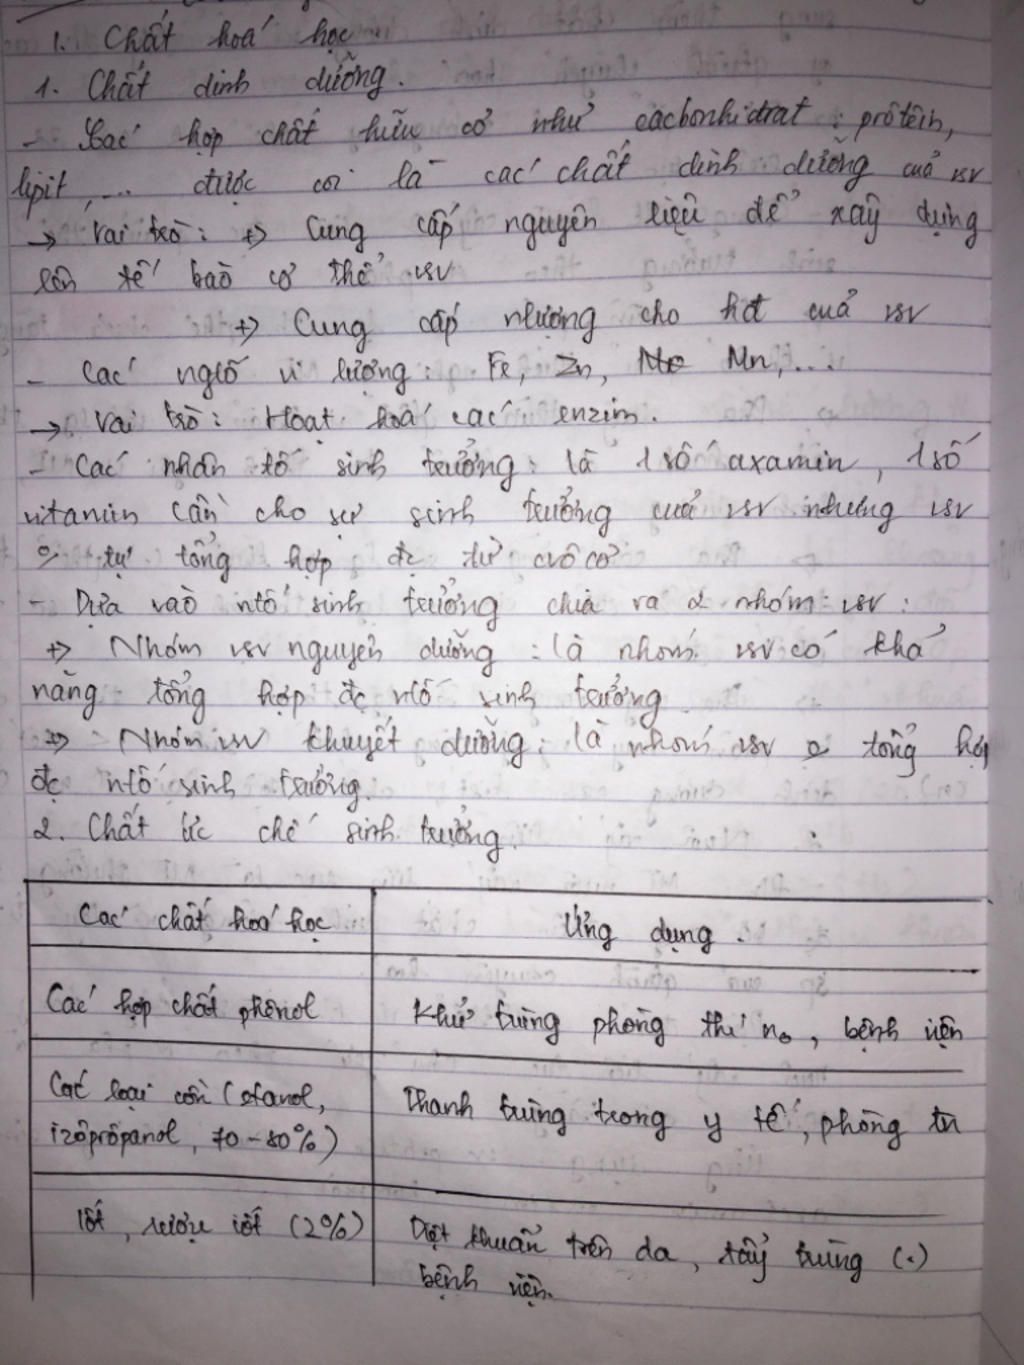 1. Chất hoá học
1. Chất dinh dưỡng.
- Các hợp chất hữu cơ như cacbonhidrat, prôtêin,
lipit, ... được coi là các chất dinh dưỡng của vsv
→ Vai trò: +> Cung cấp nguyên liệu để xây dựng
lên tế bào cơ thể vsv
+> Cung cấp nlượng cho hđ của vsv
- Các ngtố vi lượng: Fe, Zn, Mo Mn,...
→ Vai trò: Hoạt hoá các enzim.
- Các nhân tố sinh trưởng: là 1 số axamin, 1 số
vitamin cần cho sự sinh trưởng của vsv nhưng vsv
o tự tổng hợp đc từ cvôcơ
- Dựa vào ntố sinh trưởng chia ra 2 nhóm vsv:
+> Nhóm vsv nguyên dưỡng: là nhóm vsv có khả
năng tổng hợp đc ntố sinh trưởng
+> Nhóm vsv khuyết dưỡng: là nhóm vsv o tổng hợp
đc ntố sinh trưởng.
2. Chất ức chế sinh trưởng.
Các chất hoá học Ứng dụng.
Các hợp chất phênol Khử trùng phòng thí no, bệnh viện
Các loại cồn (etanol,
izôprôpanol, 70-80%) Thanh trùng trong y tế, phòng tn
Iốt, rượu iốt (2%) Diệt khuẩn trên da, tẩy trùng (.)
bệnh viện.